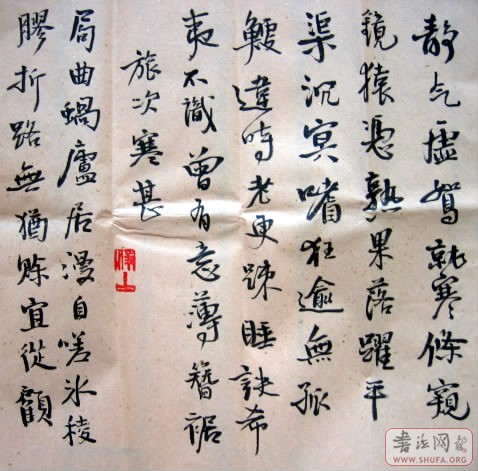 靜氣虛鴛就寒條窺
鏡猿憑熟果落躍平
渠沉冥嗜狂逾無孤
鰥違時老更疎睡訣希
夷不識曾有意薄簪裾
旅次寒甚
局曲蝸廬居漫自嗟冰稜
膠折路無猶賒宜從顧
書法网
WWW.SHUFA.ORG